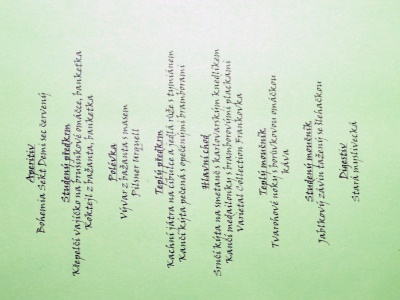 Aperitiv
Bohemia Sekt Demi sec červený
Studený předkrm
Křepelčí vajíčko na brusinkové omáčce, banketka
Koktejl z bažanta, banketka
Polévka
Vývar z bažanta s masem
Pilsner Urquell
Teplý předkrm
Kachní játra na cibulce a jedlá růže s tymiánem
Kančí kýta pečená s opečenými bramborami
Hlavní chod
Srnčí kýta na smetaně s karlovarským knedlíkem
Kančí medailonky s bramborovými plackami
Varietal Collection Frankovka
Teplý moučník
Tvarohové noky s borůvkovou omáčkou
káva
Studený moučník
Jablkový závin tažený se šlehačkou
Digestiv
Stará myslivecká